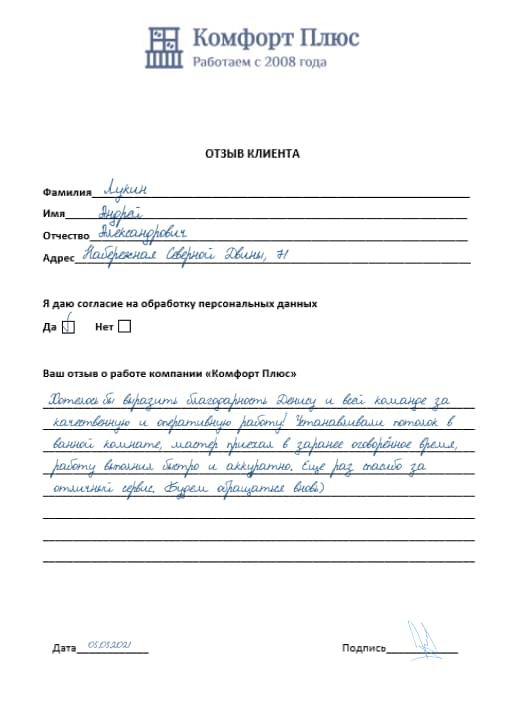 Комфорт Плюс
Работаем с 2008 года
ОТЗЫВ КЛИЕНТА
Фамилия Лукин
Имя Андрей
Отчество Александрович
Адрес Набережная Северной Двины, 71
Я даю согласие на обработку персональных данных
Да Нет
Ваш отзыв о работе компании «Комфорт Плюс»
Хотелось бы выразить благодарность Денису и всей команде за
качественную и оперативную работу! Устанавливали потолок в
ванной комнате, мастер приехал в заранее оговорённое время,
работу выполнил быстро и аккуратно. Еще раз спасибо за
отличный сервис. Будем обращаться вновь)
Дата 05.03.2021 Подпись